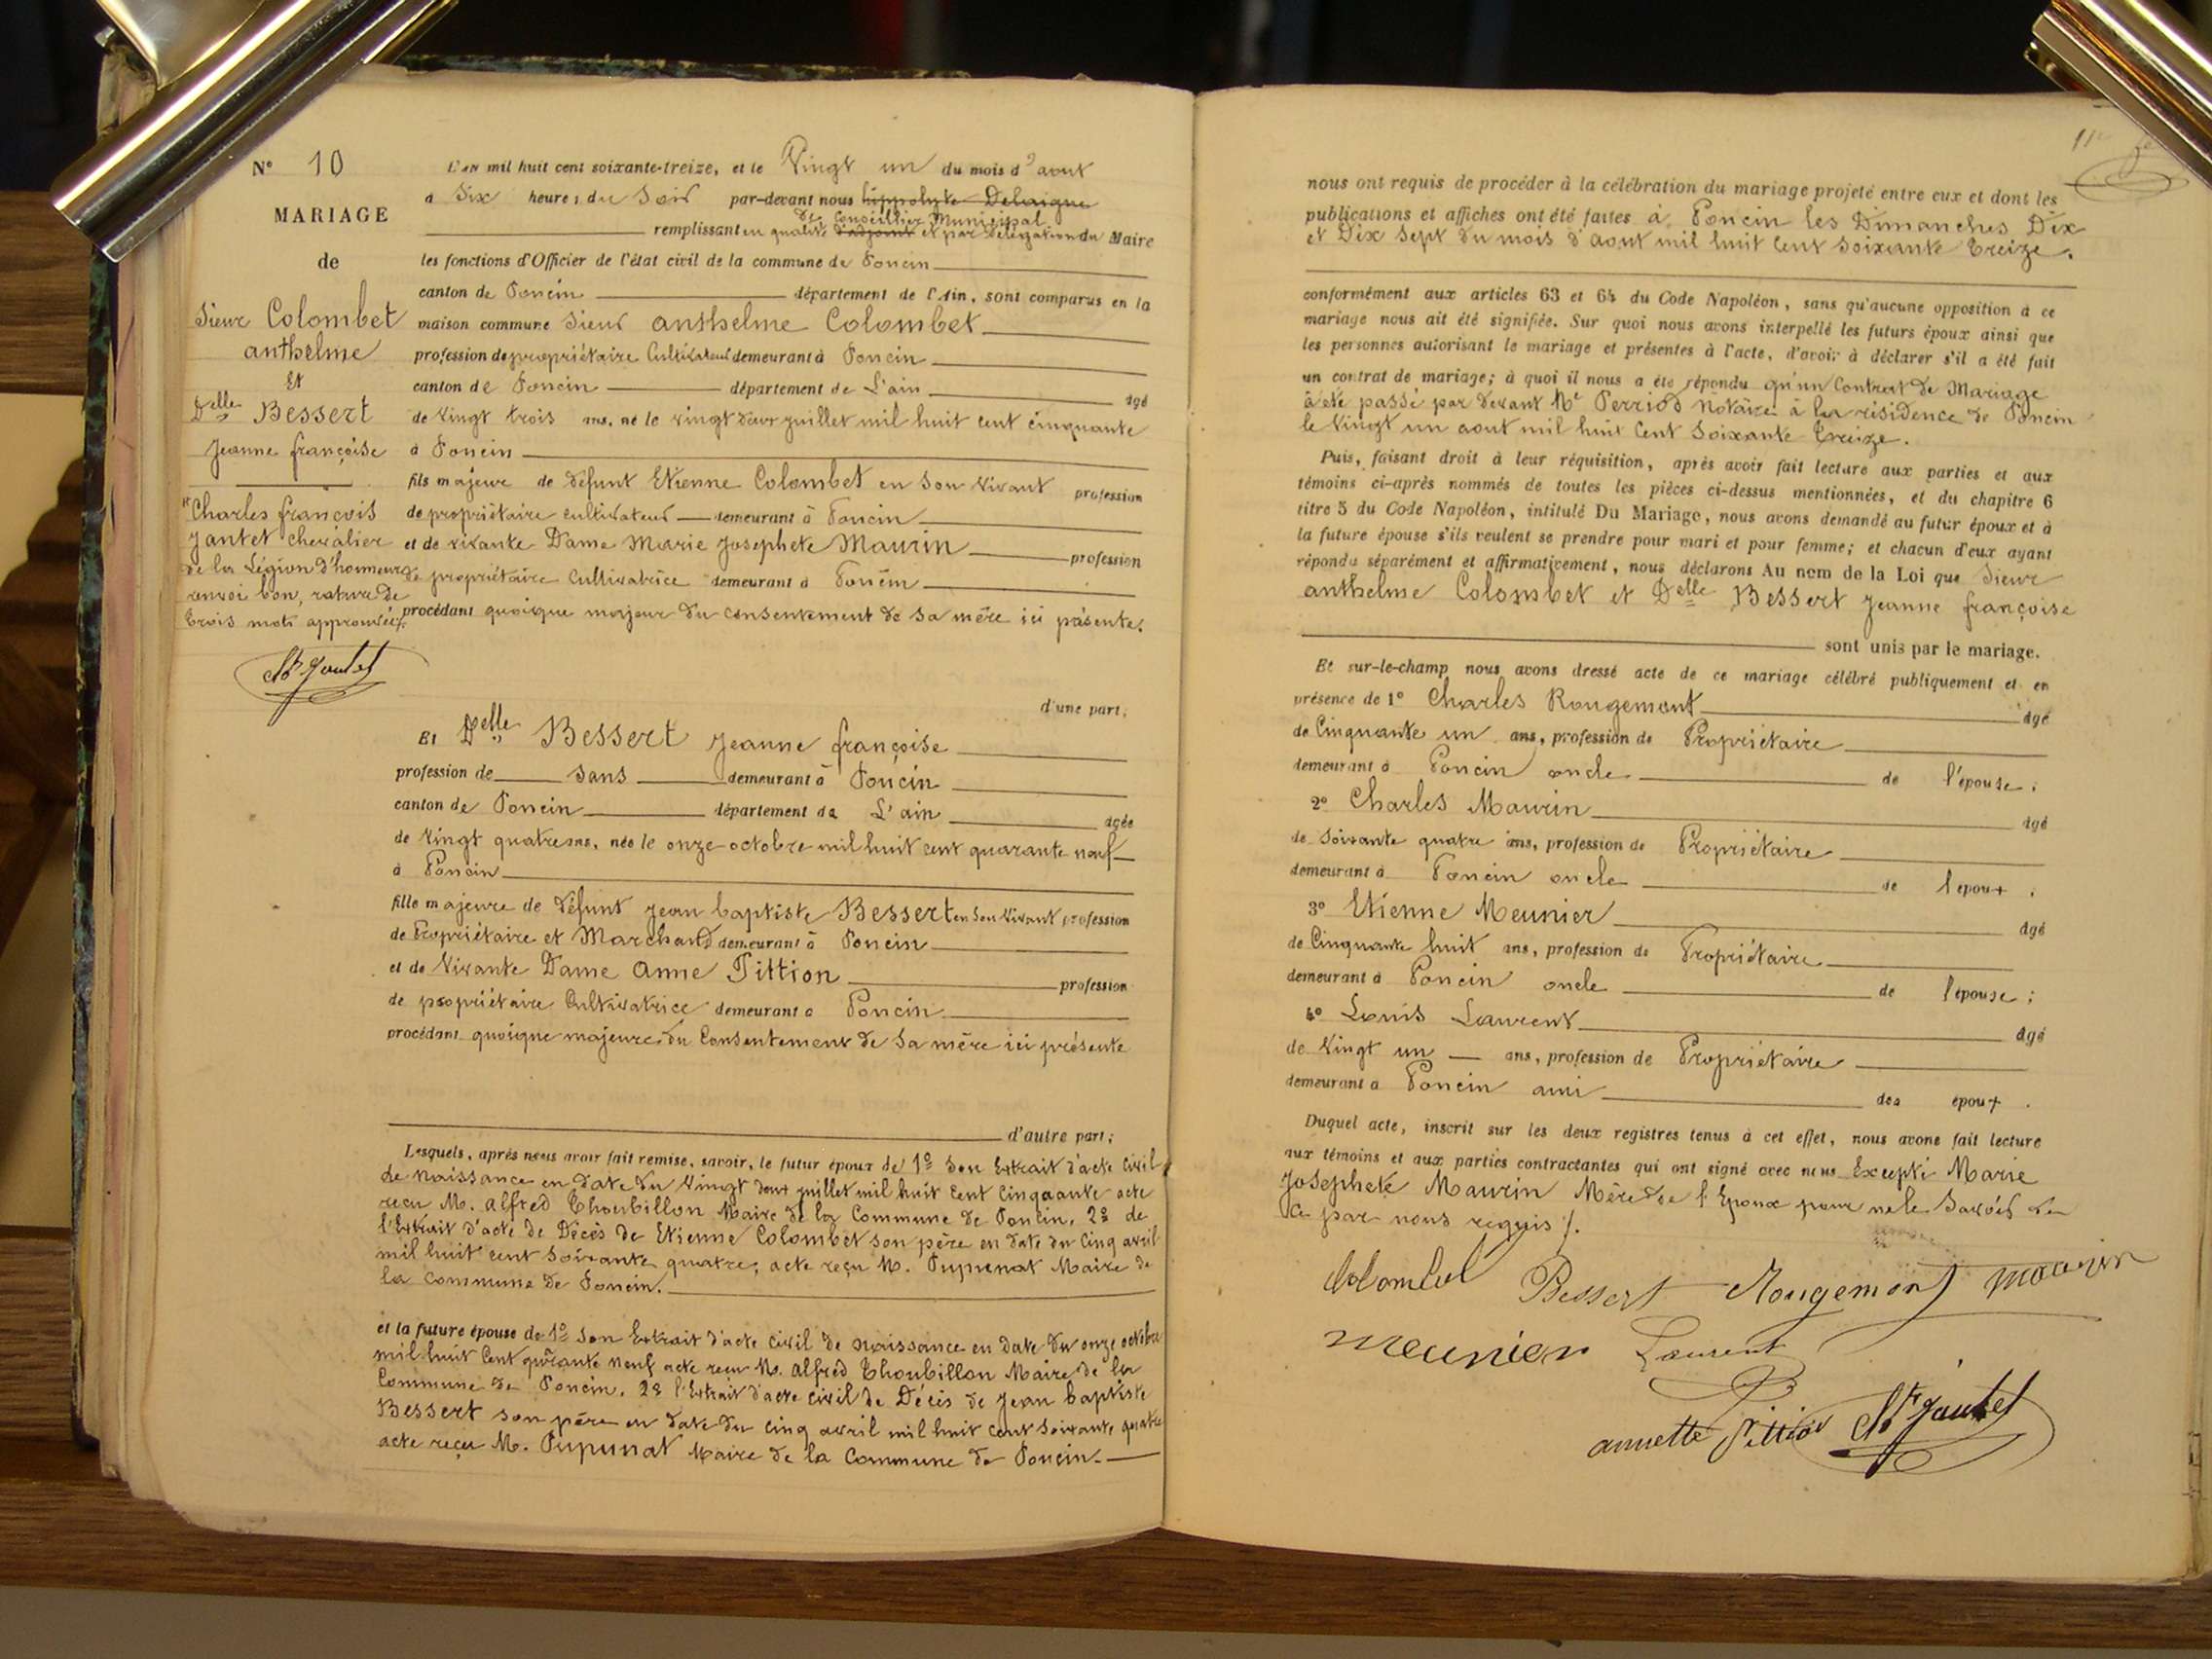 N° 10
MARIAGE
de
Sieur Colombet
anthelme
Et
Delle Bessert
Jeanne françoise
Charles françois
Jantet chevalier
de la Légion d'honneur
renvoi bon, rature de
trois mots approuvée
Ch Jantet
L'an mil huit cent soixante-treize, et le Vingt un du mois d'aout
à Six heures du Soir par-devant nous hippolyte Delaigue
de Conseiller Municipal
remplissant en qualité d'adjoint et par délégation du Maire
les fonctions d'Officier de l'état civil de la commune de Poncin
canton de Poncin département de l'Ain, sont comparus en la
maison commune Sieur anthelme Colombet
profession de propriétaire Cultivateur demeurant à Poncin
canton de Poncin département de L'ain âgé
de Vingt trois ans, né le vingt deux juillet mil huit cent cinquante
à Poncin
fils majeur de défunt Etienne Colombet en Son Vivant profession
de propriétaire cultivateur demeurant à Poncin
et de vivante Dame Marie Josephete Maurin profession
de propriétaire Cultivatrice demeurant à Poncin
procédant quoique majeur du consentement de sa mère ici présente.
d'une part;
Et Delle Bessert Jeanne françoise
profession de sans demeurant à Poncin
canton de Poncin département de L'ain âgée
de Vingt quatre ans, née le onze octobre mil huit cent quarante neuf
à Poncin
fille majeure de défunt Jean baptiste Bessert en Son Vivant profession
de Propriétaire et Marchand demeurant à Poncin
et de Vivante Dame Anne Pittion profession
de propriétaire Cultivatrice demeurant à Poncin
procédant quoique majeure du Consentement de Sa mère ici présente
d'autre part;
Lesquels, après nous avoir fait remise, savoir, le futur époux de 1° Son Extrait d'acte Civil
de Naissance en date du Vingt deux juillet mil huit Cent Cinquante acte
reçu M. Alfred Thoubillon Maire de la Commune de Poncin. 2° de
l'Extrait d'acte de Décès de Etienne Colombet son père en date du Cinq avril
mil huit cent Soixante quatre, acte reçu M. Pupunat Maire de
la Commune de Poncin.
et la future épouse de 1° Son Extrait d'acte Civil de Naissance en date du onze octobre
mil huit Cent quarante neuf acte reçu M. Alfred Thoubillon Maire de la
Commune de Poncin. 2° l'Extrait d'acte Civil de Décès de Jean baptiste
Bessert son père en date du Cinq avril mil huit cent Soixante quatre
acte reçu M. Pupunat Maire de la Commune de Poncin.
nous ont requis de procéder à la célébration du mariage projeté entre eux et dont les
publications et affiches ont été faites à Poncin les Dimanches Dix
et Dix Sept du mois d'aout mil huit Cent Soixante Treize.
conformément aux articles 63 et 64 du Code Napoléon, sans qu'aucune opposition à ce
mariage nous ait été signifiée. Sur quoi nous avons interpellé les futurs époux ainsi que
les personnes autorisant le mariage et présentes à l'acte, d'avoir à déclarer s'il a été fait
un contrat de mariage; à quoi il nous a été répondu qu'un Contrat de Mariage
à été passé par devant Me Perriod Notaire à la résidence de Poncin
le Vingt un aout mil huit Cent Soixante Treize.
Puis, faisant droit à leur réquisition, après avoir fait lecture aux parties et aux
témoins ci-après nommés de toutes les pièces ci-dessus mentionnées, et du chapitre 6
titre 5 du Code Napoléon, intitulé Du Mariage, nous avons demandé au futur époux et à
la future épouse s'ils veulent se prendre pour mari et pour femme; et chacun d'eux ayant
répondu séparément et affirmativement, nous déclarons Au nom de la Loi que Sieur
anthelme Colombet et Delle Bessert Jeanne françoise
sont unis par le mariage.
Et sur-le-champ nous avons dressé acte de ce mariage célébré publiquement et en
présence de 1° Charles Rougemont âgé
de Cinquante un ans, profession de Propriétaire
demeurant à Poncin oncle de l'épouse;
2° Charles Maurin âgé
de Soixante quatre ans, profession de Propriétaire
demeurant à Poncin oncle de l'époux.
3° Etienne Meunier âgé
de Cinquante huit ans, profession de Propriétaire
demeurant à Poncin oncle de l'épouse;
4° Louis Laurent âgé
de Vingt un ans, profession de Propriétaire
demeurant à Poncin ami des époux.
Duquel acte, inscrit sur les deux registres tenus à cet effet, nous avons fait lecture
aux témoins et aux parties contractantes qui ont signé avec nous Excepté Marie
Josephete Maurin Mère de l'Epoux pour ne le Savoir de
ce par nous requis /.
Colombet Bessert Rougemont Maurin
Meunier Laurent
annette Pittion Ch Jantet